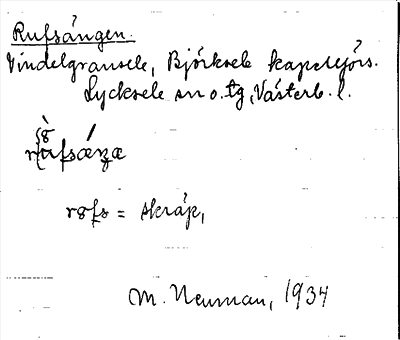 Rufsången.
Vindelgransele, Björksele kapellförs.
Lycksele sn o. tg, Västerb. l.
= skräp,
M. Neuman, 1934